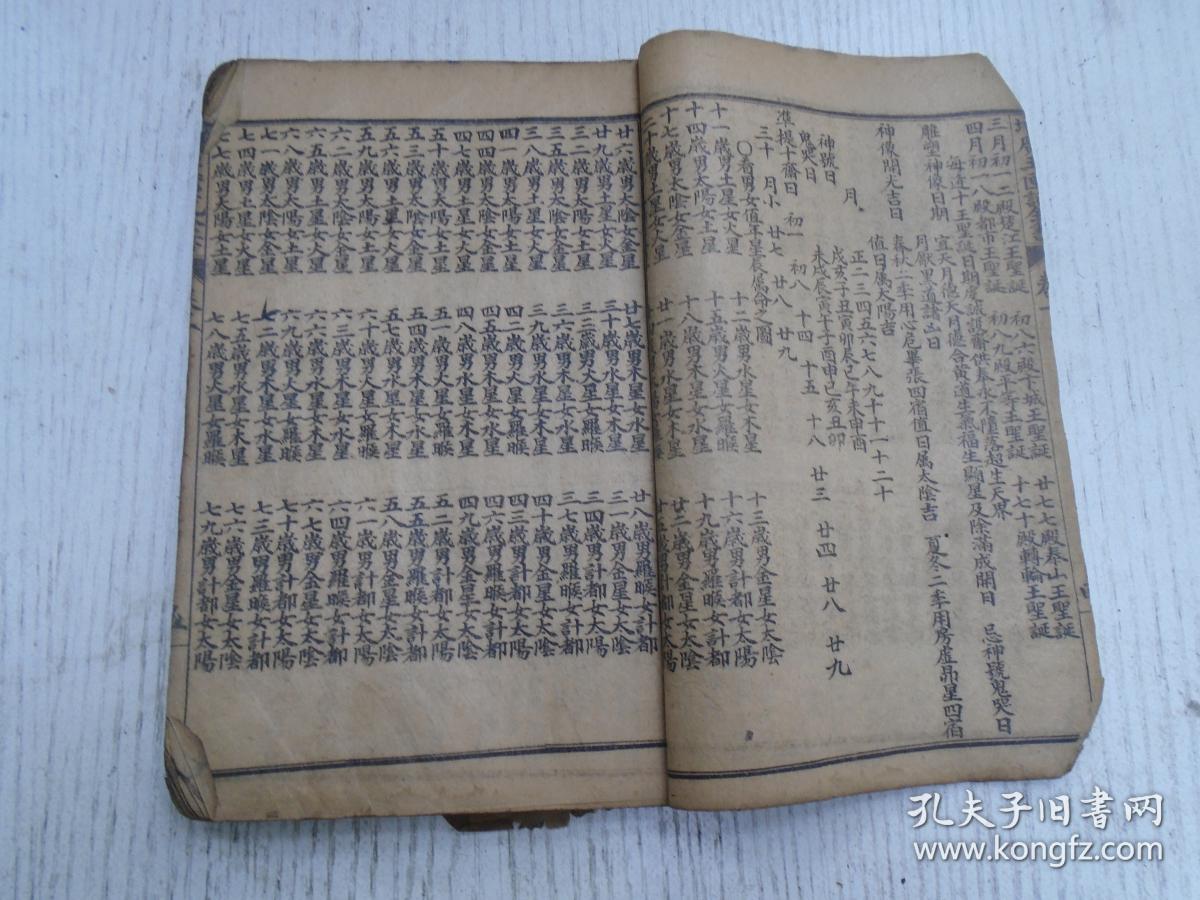 三月初一二殿楚江王聖誕 初八六殿卞城王聖誕 廿七七殿泰山王聖誕
四月初一八殿都市王聖誕 初八九殿平等王聖誕 十七十殿轉輪王聖誕
每逢十王聖誕日期虔誠設齋供奉永不墮落超生天界
雕塑神像日期 宜天月德天月德合黃道生氣福生顯星及除滿成開日 忌神號鬼哭日
月厭黑道諸凶日
神像開光吉日 春秋二季用心危畢張四宿值日属太陰吉 夏冬二季用房虛昴星四宿
值日属太陽吉
月 正二三四五六七八九十十一十二十
神號日 戌亥子丑寅卯辰巳午未申酉
鬼哭日 未戌辰寅午子酉申巳亥丑卯
準提十齋日 初一 初八 十四 十五 十八 廿三 廿四 廿八 廿九
三十 月小 廿七 廿八 廿九
〇看男女值年星辰属命之圖
十一歲男土星女火星 十二歲男水星女木星 十三歲男金星女太陰
十四歲男太陽女土星 十五歲男火星女羅睺 十六歲男計都女太陽
十七歲男太陰女金星 十八歲男木星女水星 十九歲男羅睺女計都
二十歲男土星女火星 廿二歲男金星女太陰
廿六歲男太陰女金星 廿七歲男木星女水星 廿八歲男羅睺女計都
廿九歲男土星女火星 三十歲男水星女木星 三一歲男金星女太陰
三二歲男太陽女土星 三三歲男火星女羅睺 三四歲男計都女太陽
三五歲男太陰女金星 三六歲男木星女水星 三七歲男羅睺女計都
三八歲男土星女火星 三九歲男水星女木星 四十歲男金星女太陰
四一歲男太陽女土星 四二歲男火星女羅睺 四三歲男計都女太陽
四四歲男太陰女金星 四五歲男木星女水星 四六歲男羅睺女計都
四七歲男土星女火星 四八歲男水星女木星 四九歲男金星女太陰
五十歲男太陽女土星 五一歲男火星女羅睺 五二歲男計都女太陽
五三歲男太陰女金星 五四歲男木星女水星 五五歲男羅睺女計都
五六歲男土星女火星 五七歲男水星女木星 五八歲男金星女太陰
五九歲男太陽女土星 六十歲男火星女羅睺 六一歲男計都女太陽
六二歲男太陰女金星 六三歲男木星女水星 六四歲男羅睺女計都
六五歲男土星女火星 六六歲男水星女木星 六七歲男金星女太陰
六八歲男太陽女土星 六九歲男火星女羅睺 七十歲男計都女太陽
七一歲男太陰女金星 七二歲男木星女水星 七三歲男羅睺女計都
七四歲男土星女火星 七五歲男水星女木星 七六歲男金星女太陰
七七歲男太陽女土星 七八歲男火星女羅睺 七九歲男計都女太陽
孔夫子旧书网
www.kongfz.com